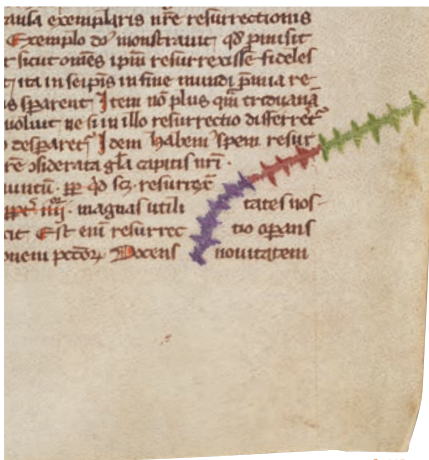 causa exemplaris nr̄e resurrectionis
Exemplo do monstrauit qd̄ pmisit
sicut om̄es ip̄m resurrexisse fideles
ita in seip̄is in fine mundi p̄mia re-
s sparent Item nō plus qm̄ triduana
uoluit ne si in illo resurrectio differret᷑
desparet᷑ Idem habem᷑ spem resur
r̄e ɔsiderata gl̄a capitis nr̄i ·
qd̄ scꝫ · resurrex̄e
iiij · magnas utili tates nos-
Est eni᷑ resurrec tio oꝑans
onem pctōꝝ Docens nouitatem